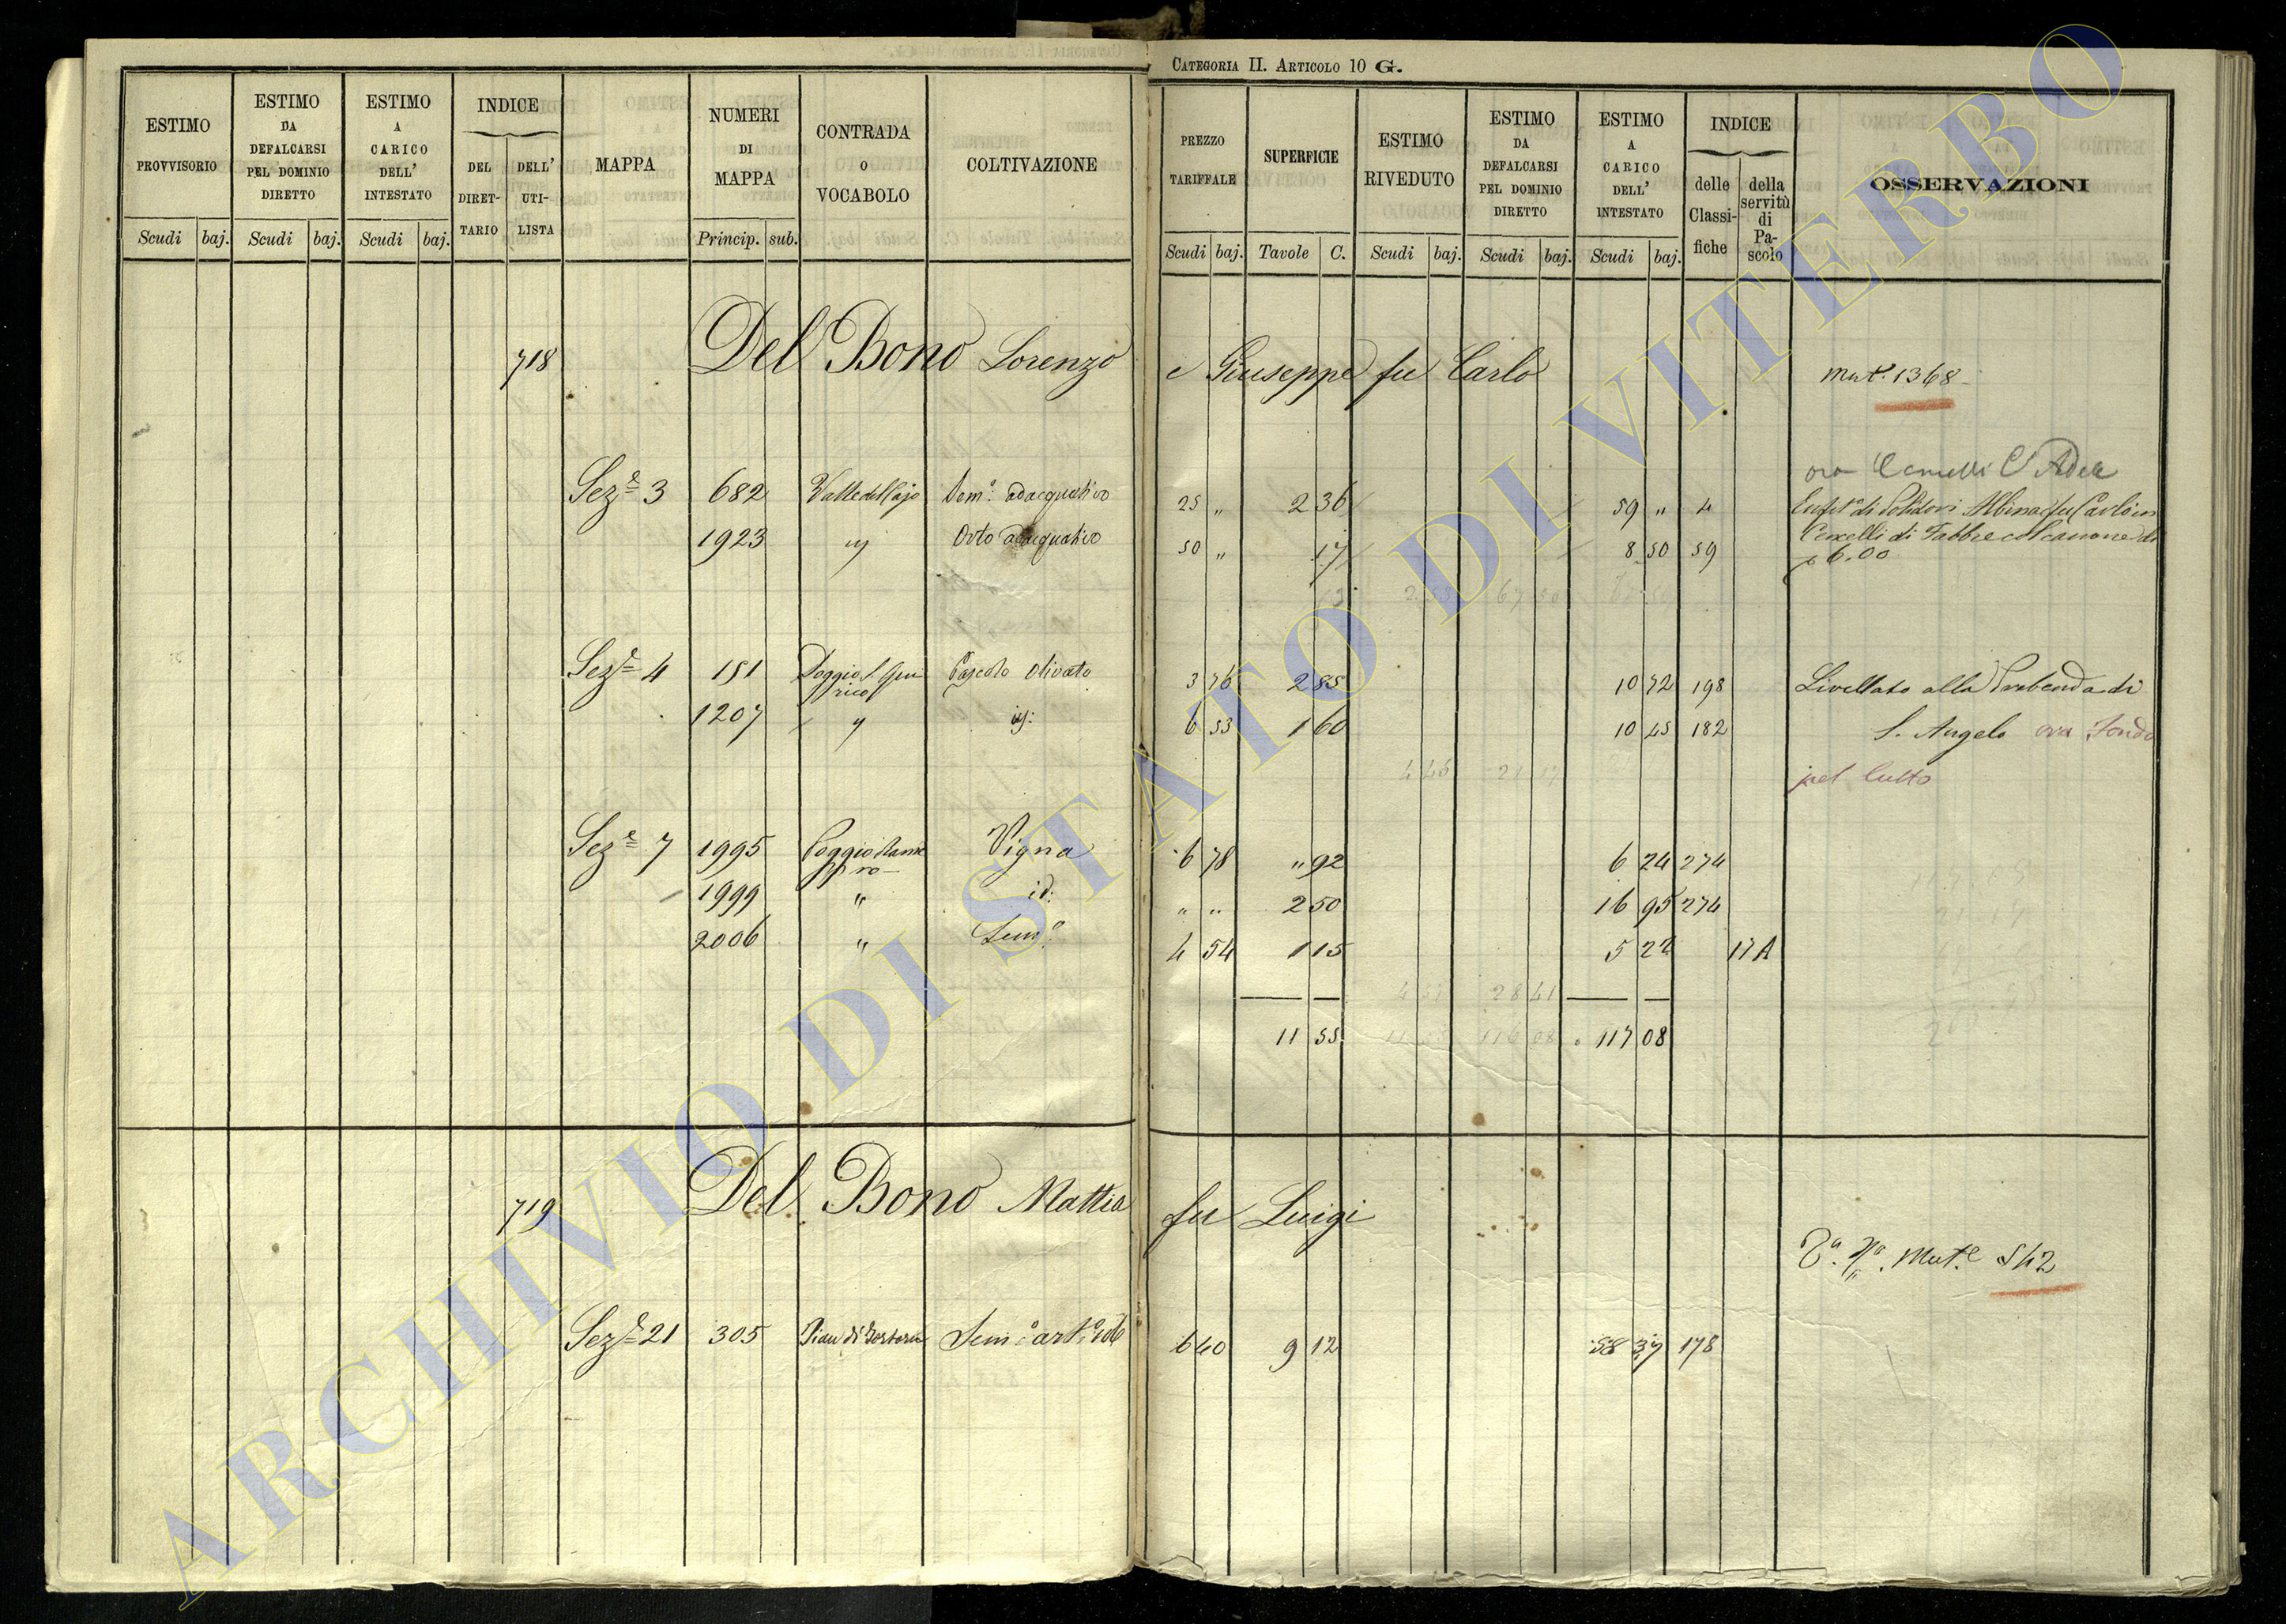 CATEGORIA II. ARTICOLO 10 G.
ESTIMO PROVVISORIO Scudi baj.
ESTIMO DA DEFALCARSI PEL DOMINIO DIRETTO Scudi baj.
ESTIMO A CARICO DELL' INTESTATO Scudi baj.
INDICE DEL DIRET-TARIO DELL' UTI-LISTA
MAPPA
NUMERI DI MAPPA Princip. sub.
CONTRADA O VOCABOLO
COLTIVAZIONE
PREZZO TARIFFALE Scudi baj.
SUPERFICIE Tavole C.
ESTIMO RIVEDUTO Scudi baj.
ESTIMO DA DEFALCARSI PEL DOMINIO DIRETTO Scudi baj.
ESTIMO A CARICO DELL' INTESTATO Scudi baj.
INDICE delle Classi-fiche della servitù di Pa-scolo
OSSERVAZIONI
718 Del Bono Lorenzo e Giuseppe fu Carlo Mut. 1368
ora Adele
Seze 3 682 Valle del Lajo Sem.o adacquativo 25 „ 2 36 59 „ 4 Enfit. di Polidori Albina fu Carlo in
1923 „ Orto adacquativo 50 „ 17 8 50 59 di Fabbre col canone di
6.00
2 53 67 50
Seze 4 151 Poggio S. Qui Pascolo Olivato 3 76 2 85 10 72 198 Livellato alla Prebenda di
rico
1207 „ id: 6 53 1 60 10 45 182 S. Angelo ora Fondo
4 45 21 17 pel Culto
Seze 7 1995 Poggio Vigna 6 78 „ 92 6 24 274
1999 „ id: „ „ 2 50 16 95 274
2006 „ Sem.o 4 54 1 15 5 22 17 A
28 41
11 55 116 08 117 08
719 Del Bono Mattia fu Luigi
Mut.e 542
Seze 21 305 Pian di Sem.o 6 40 9 12 58 37 178
ARCHIVIO DI STATO DI VITERBO